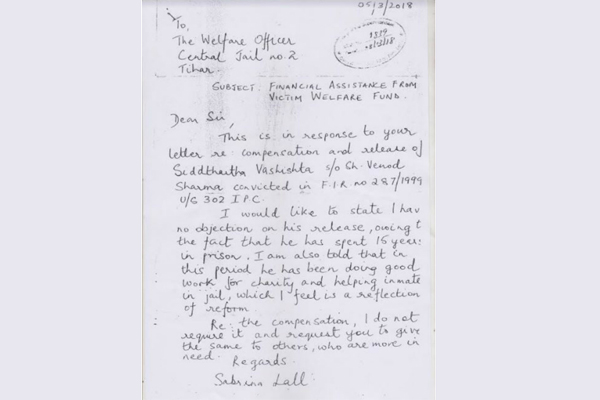 05/3/2018
To,
The Welfare Officer
Central Jail no. 2
Tihar.
SUBJECT: FINANCIAL ASSISTANCE FROM
VICTIM WELFARE FUND.
Dear Sir,
This is in response to your
letter re: compensation and release of
Siddthartha Vashishta s/o Sh. Venod
Sharma convicted in F.I.R. no 287/1999
U/S 302 I.P.C.
I would like to state I hav
no objection on his release, owing t
the fact that he has spent 15 years
in prison. I am also told that in
this period he has been doing good
work for charity and helping inmate
in jail, which I feel is a reflection
of reform
Re: the compensation, I do not
require it and request you to give
the same to others, who are more in
need.
Regards.
Sabrina Lall.